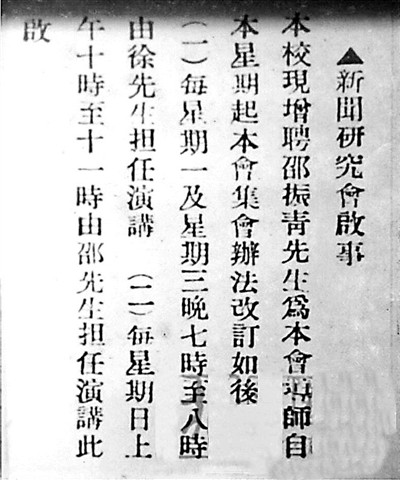 ▲新聞研究會啟事
本校現增聘邵振青先生爲本會導師自
本星期起本會集會辦法改訂如後
(一)每星期一及星期三晚七時至八時
由徐先生担任演講 (二)每星期日上
午十時至十一時由邵先生担任演講此
啟